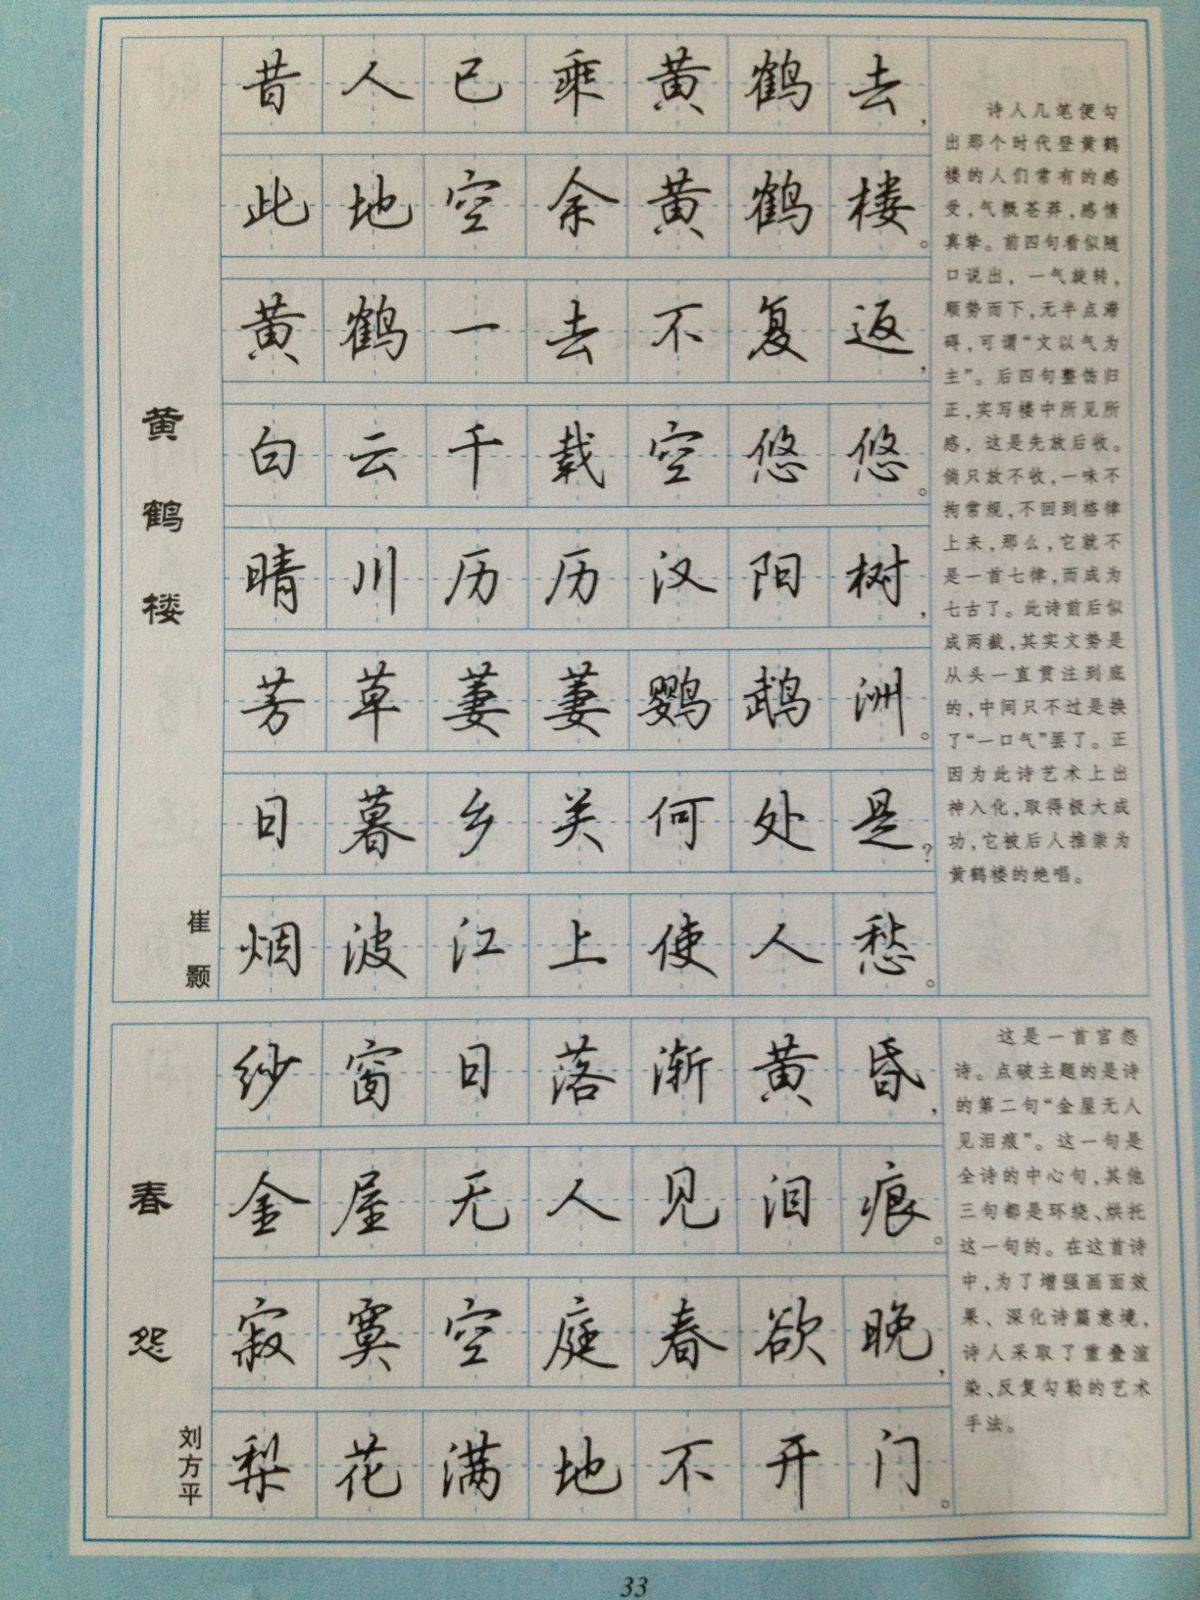 黄鹤楼
崔颢
昔人已乘黄鹤去，
此地空余黄鹤楼。
黄鹤一去不复返，
白云千载空悠悠。
晴川历历汉阳树，
芳草萋萋鹦鹉洲。
日暮乡关何处是？
烟波江上使人愁。
诗人几笔便勾
出那个时代登黄鹤
楼的人们常有的感
受，气概苍莽，感情
真挚。前四句看似随
口说出，一气旋转，
顺势而下，无半点滞
碍，可谓“文以气为
主”。后四句整饬归
正，实写楼中所见所
感，这是先放后收。
倘只放不收，一味不
拘常规，不回到格律
上来，那么，它就不
是一首七律，而成为
七古了。此诗前后似
成两截，其实文势是
从头一直贯注到底
的，中间只不过是换
了“一口气”罢了。正
因为此诗艺术上出
神入化，取得极大成
功，它被后人推崇为
黄鹤楼的绝唱。
春怨
刘方平
纱窗日落渐黄昏，
金屋无人见泪痕。
寂寞空庭春欲晚，
梨花满地不开门。
这是一首宫怨
诗。点破主题的是诗
的第二句“金屋无人
见泪痕”。这一句是
全诗的中心句，其他
三句都是环绕、烘托
这一句的。在这首诗
中，为了增强画面效
果、深化诗篇意境，
诗人采取了重叠渲
染、反复勾勒的艺术
手法。
33